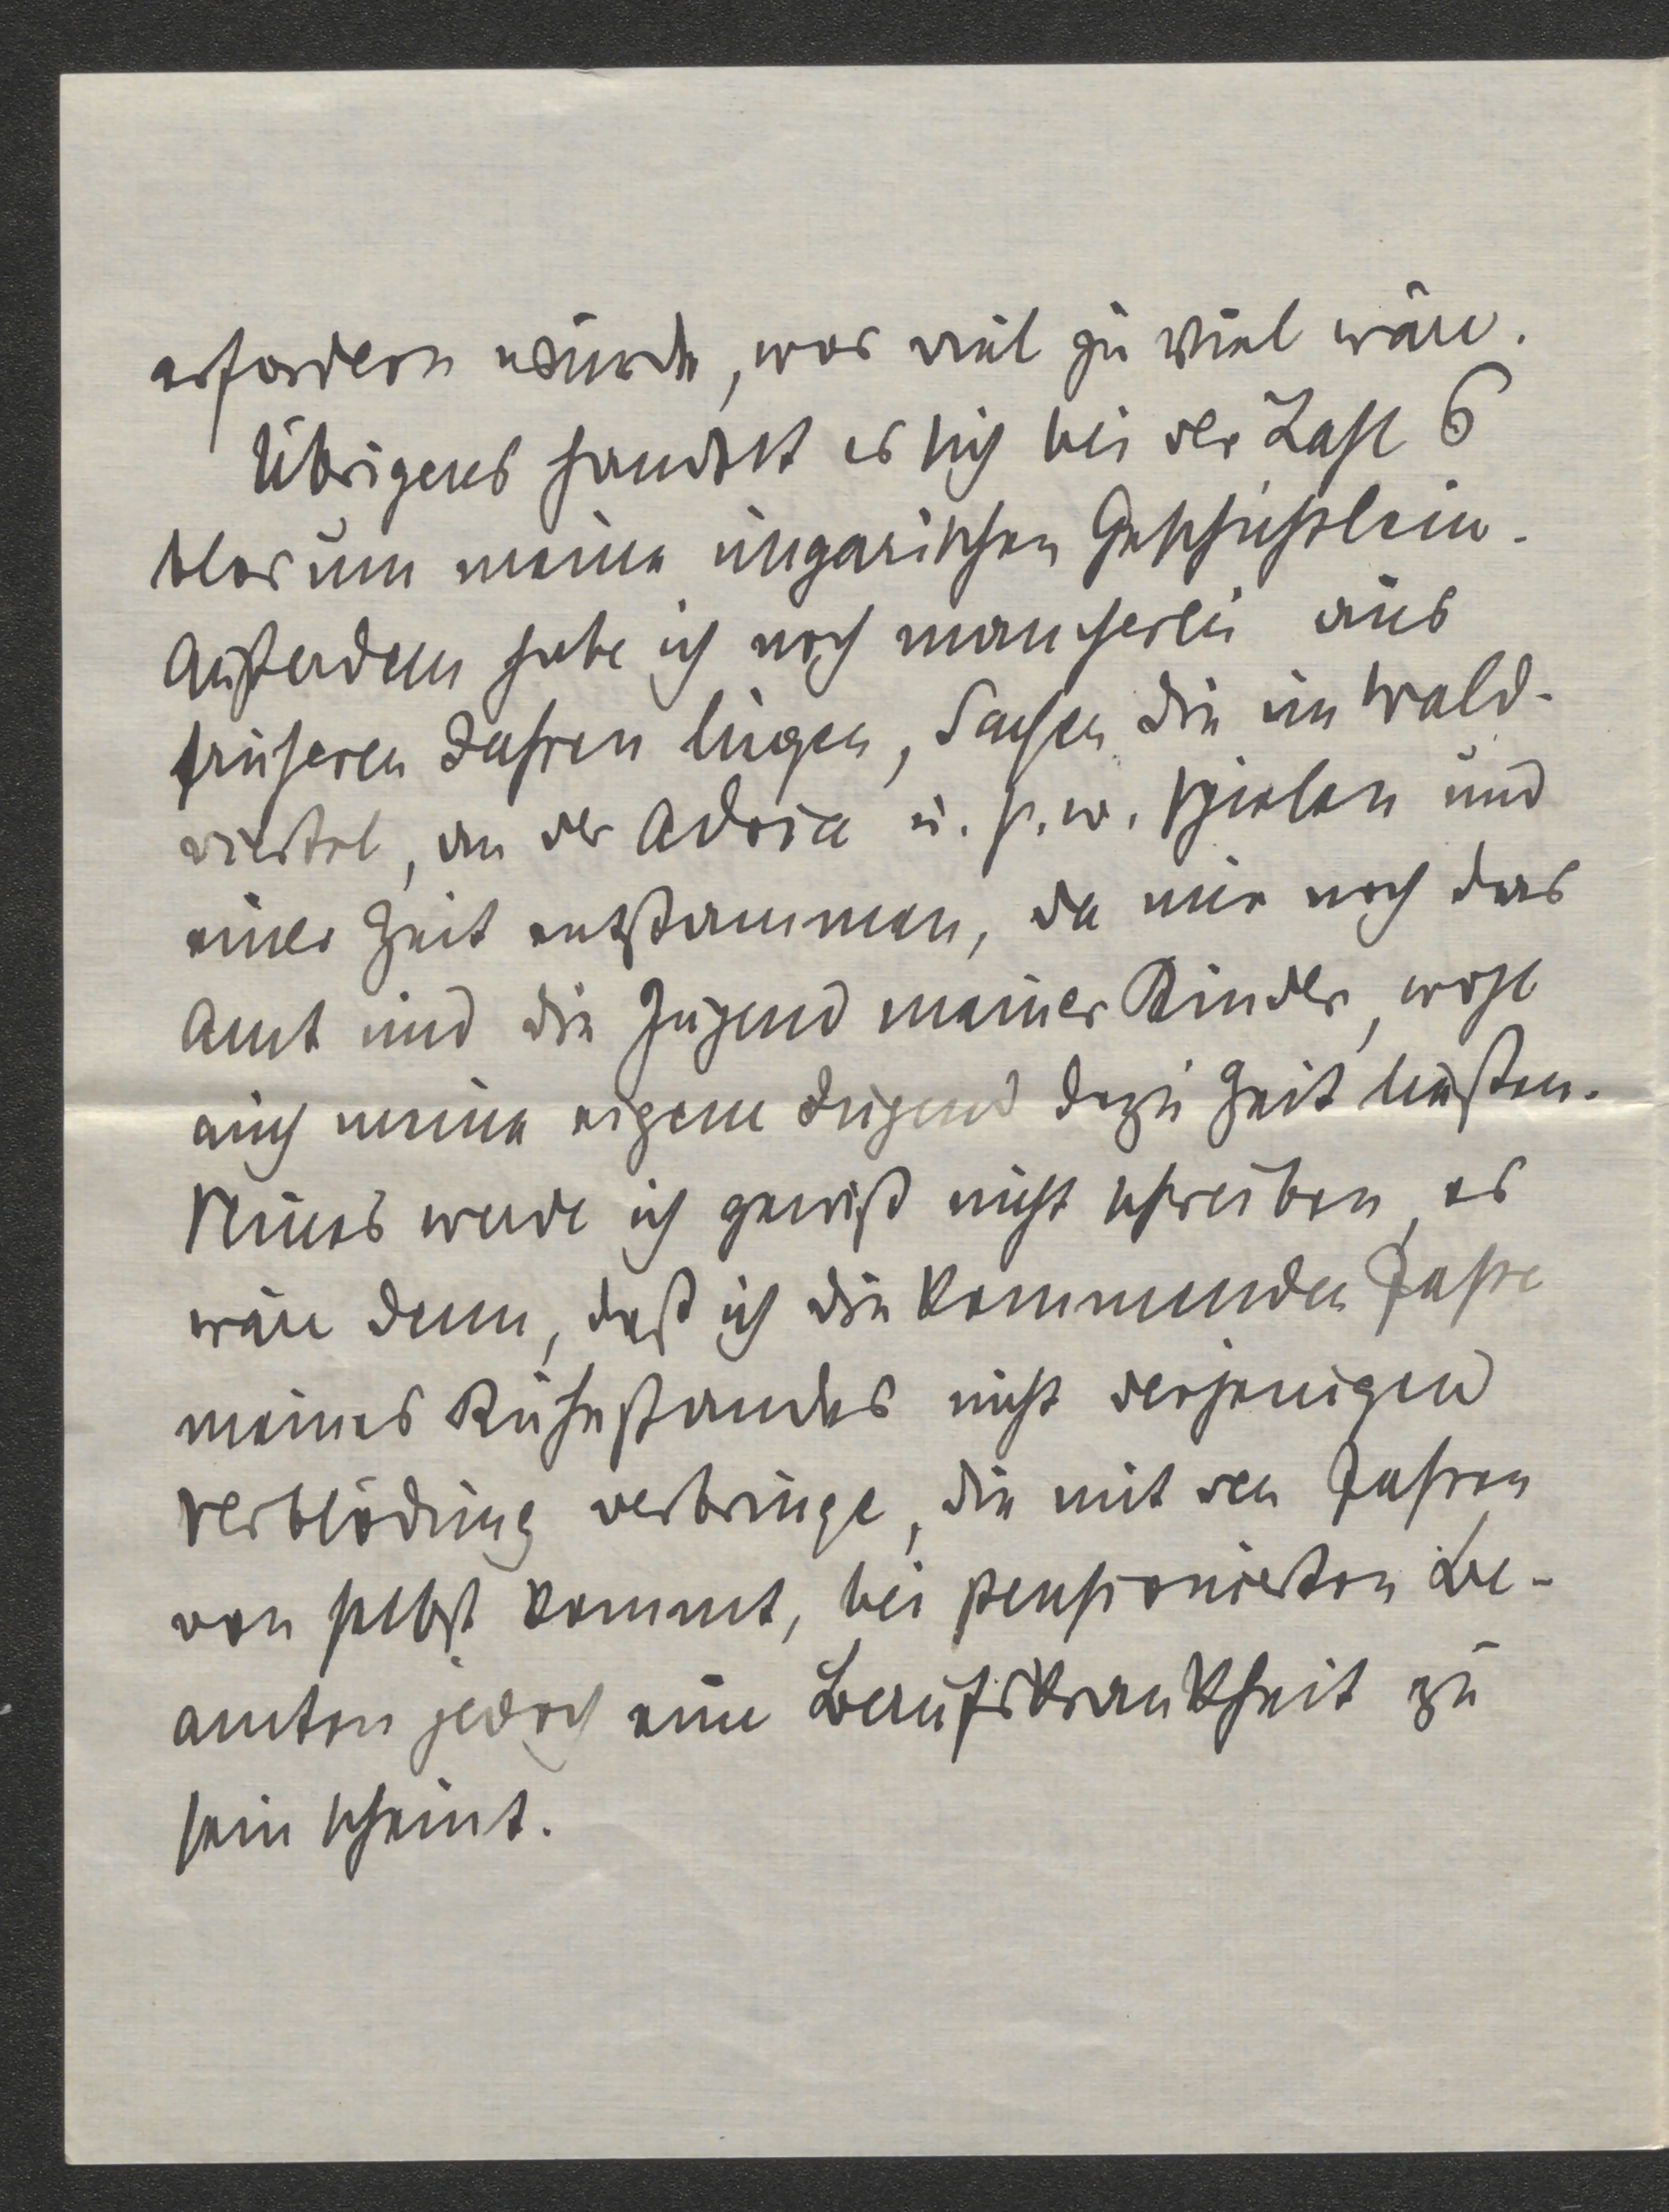 erfordern würde, was viel zu viel wäre.
Übrigens handelt es sich bei der Zahl 6
blos um meine ungarischen Geschichtlein.
Außerdem habe ich noch mancherlei aus
früheren Jahren liegen, Sachen die im Wald-
viertel, an der Adria u. s. w. spielen und
einer Zeit entstammen, da mir noch das
Amt und die Jugend meiner Kinder, wohl
auch meine eigene Jugend dazu Zeit ließen.
Neues werde ich gewiß nicht schreiben, es
wäre denn, daß ich die kommenden Jahre
meines Ruhestandes nicht derjenigen
Verblödung verbringe, die mit den Jahren
von selbst kommt, bei pensionierten Be-
amten jedoch eine Berufskrankheit zu
sein scheint.